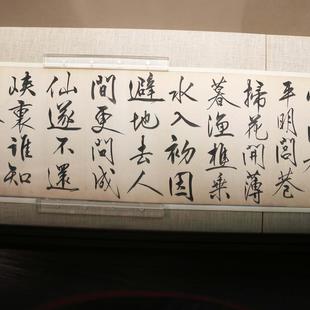 平明閭巷
掃花開薄
暮漁樵乘
水入初因
避地去人
間更問成
仙遂不還
峽裏誰知